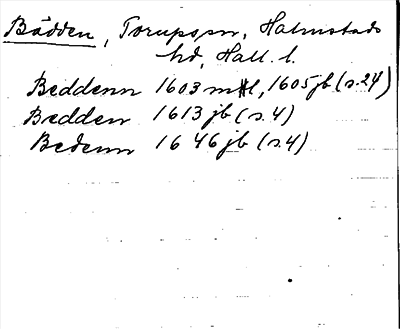 Bädden, Torups sn, Halmstads
hd, Hall. l.
Beddenn 1603 mtl, 1605 jb (s. 24)
Bedden 1613 jb (s. 4)
Bedenn 1646 jb (s. 4)